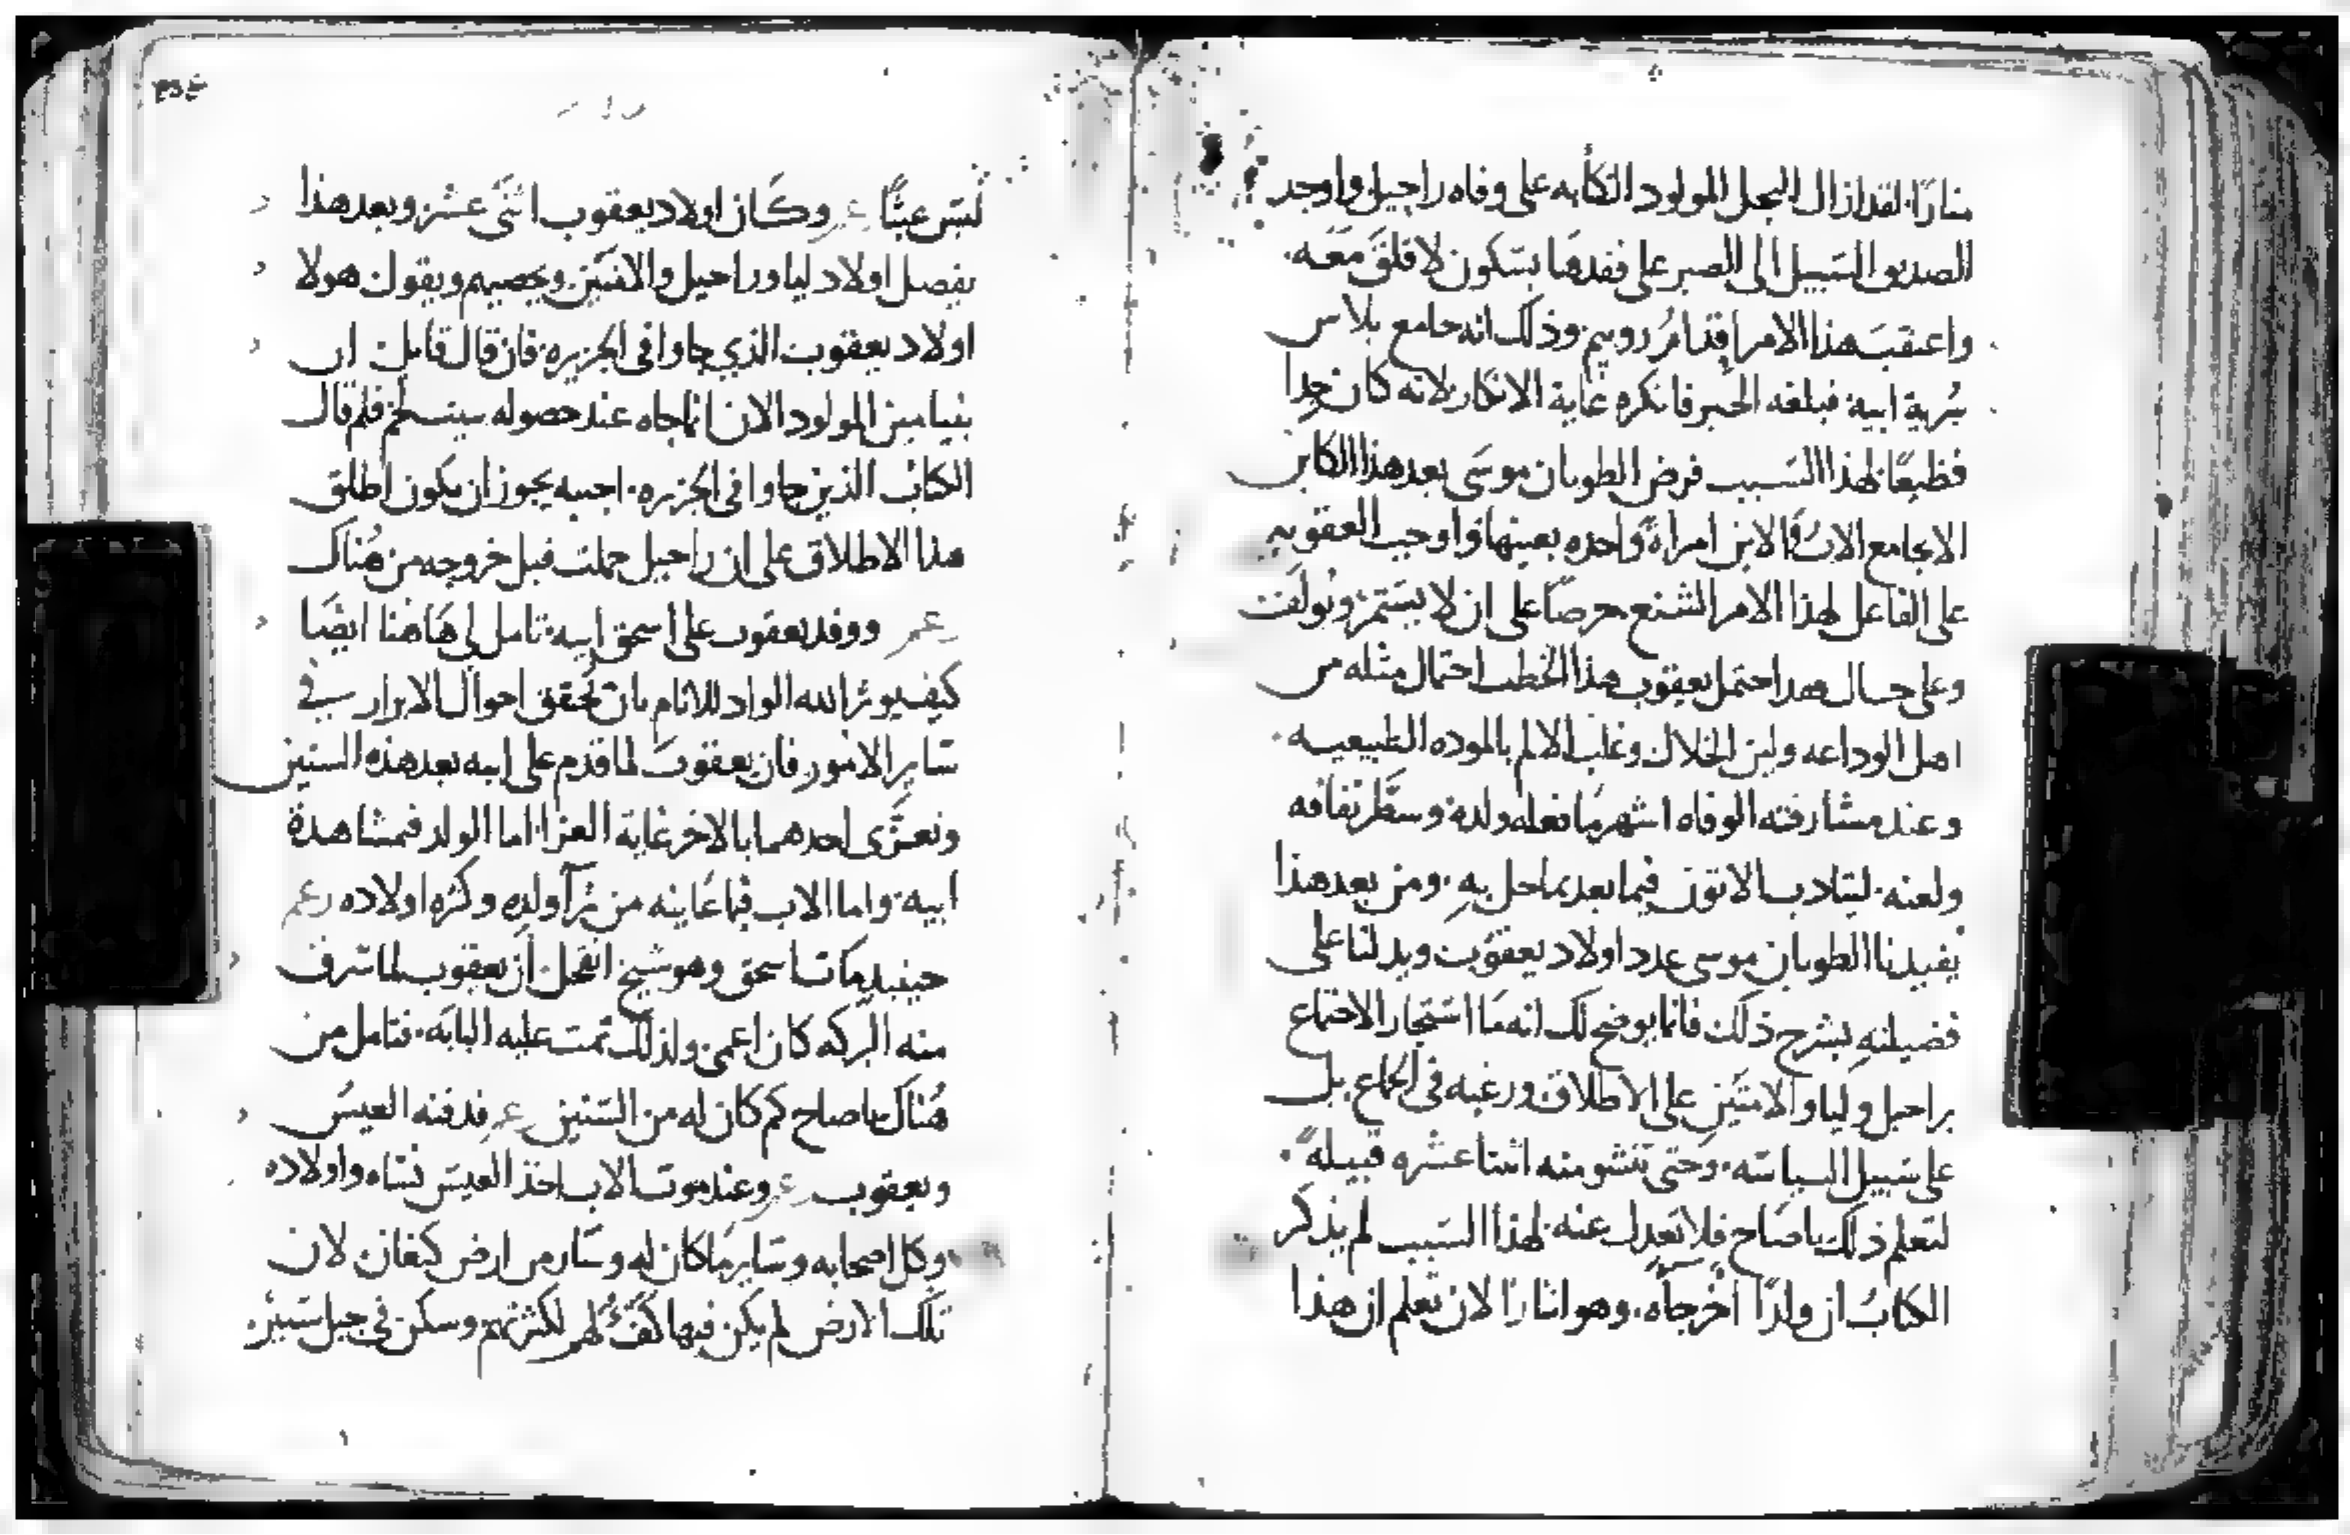 منارًا لقد ازال النجل المولود الكأبه على وفاه راحيل واوجد
الصديق السَبيل الى الصبر على فقدها بسَكون لا قلقَ مَعَه.
واعتقبَ هذا الامر اقدامُ روبيم وذلك انه جامع بلاس
سُرية ابيه فبلغه الخبر فانكره غاية الانكار لانه كان جدا
فظيعًا لهذا السَبب فرض الطوبان موسَى بعد هذا الكاين
الا يجامع الابُ والابن امراةً واحده بعينها واوجب العقوبه
على الفاعل لهذا الامر الشنع حرصًا على ان لا يسَتمر
وعلى حال هدا احتمل يعقوب هذا الخطب احتمال مثله من
اهل الوداعه ولين الخلال وغلب الالم بالموده الطبيعيه.
وعند مشارفته الوفاه اشهر مَا فعله ولده وسطَّر نفاقه
ولعنه. ليتادب الاتون فيما بعد بما حل به. ومن بعد هذا
يُفيدنا الطوبان موسى عدد اولاد يعقوب ويدلنا على
فضيلته بشرح ذلك فانما يوضح لك انه مَا اسَتجار الاجتماع
براحيل وليا والامتَين على الاطلاق ورغبه في الجماع بل
على سَبيل السياسَه. وحتى تنشو منه اثنتا عشره قبيلهً.
لتعلم ذلك يا صَاح فلا تعدل عنه لهذا السَبب لم يذكر
الكتابُ ان ولدًا اخرجاَه. وهو اشارا لان تعلم ان هذا
لَيسَ عبثًا وكَان اولاد يعقوب اثنَي عشر وبعد هذا
يفصل اولاد ليا وراحيل والامتَين. ويحصيهم ويقول هولا
اولاد يعقوب الذي جاوا في الجزيره. فان قال قايل ان
بنيامين المولود الان انما جاه عند حصوله بيتَ لحم فلم قال
الكتابُ الذين جاوا في الجزيره. اجيبه يجوز ان يكون اطلق
هذا الاطلاق على ان راحيل حملت قبل خروجه من هُناك
ووفد يعقوب على اسحق ابيه. تامل لي هَاهُنا ايضًا
كيف يوثر الله الواد للانام بان تحقق احوال الابرار في
سَاير الامور فان يعقوب لما قدم على ابيه بعد هذه السنين
وتعزَّى احدهما بالاخر غاية العزا. اما الولد فبمشاهدة
ابيه. واما الاب فبما عَاينه من ثرآ ولده وكثره اولاده
حينيد مات اسحق وهو شيخ اتقول ان يعقوب لما سَرق
منه البركه كان اعمى ولذلك تمت عليه البابَه. فتامل من
هُناك يا صاح كم كان له من السَنين فدفنه العيسُ
ويعقوب وعند موت الاب اخذ العيسَ نسَاه واولاده
وكل اصحابه وسَاير مَا كان له وسَار من ارض كنعان لان
تلك الارض لم يكن فيها كفوٌ لهم لكثرتهم وسكن في جبل سَيير.